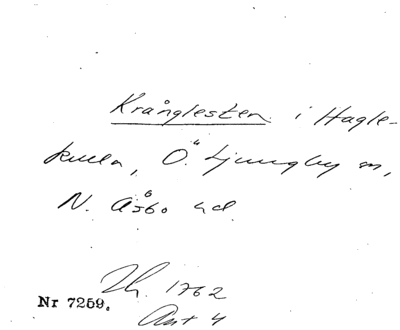 Krånglesten i Hagle-
kulla, Ö. Ljungby sn,
N. Åsbo hd.
Th. 1762
Ant 4
Nr 7259.